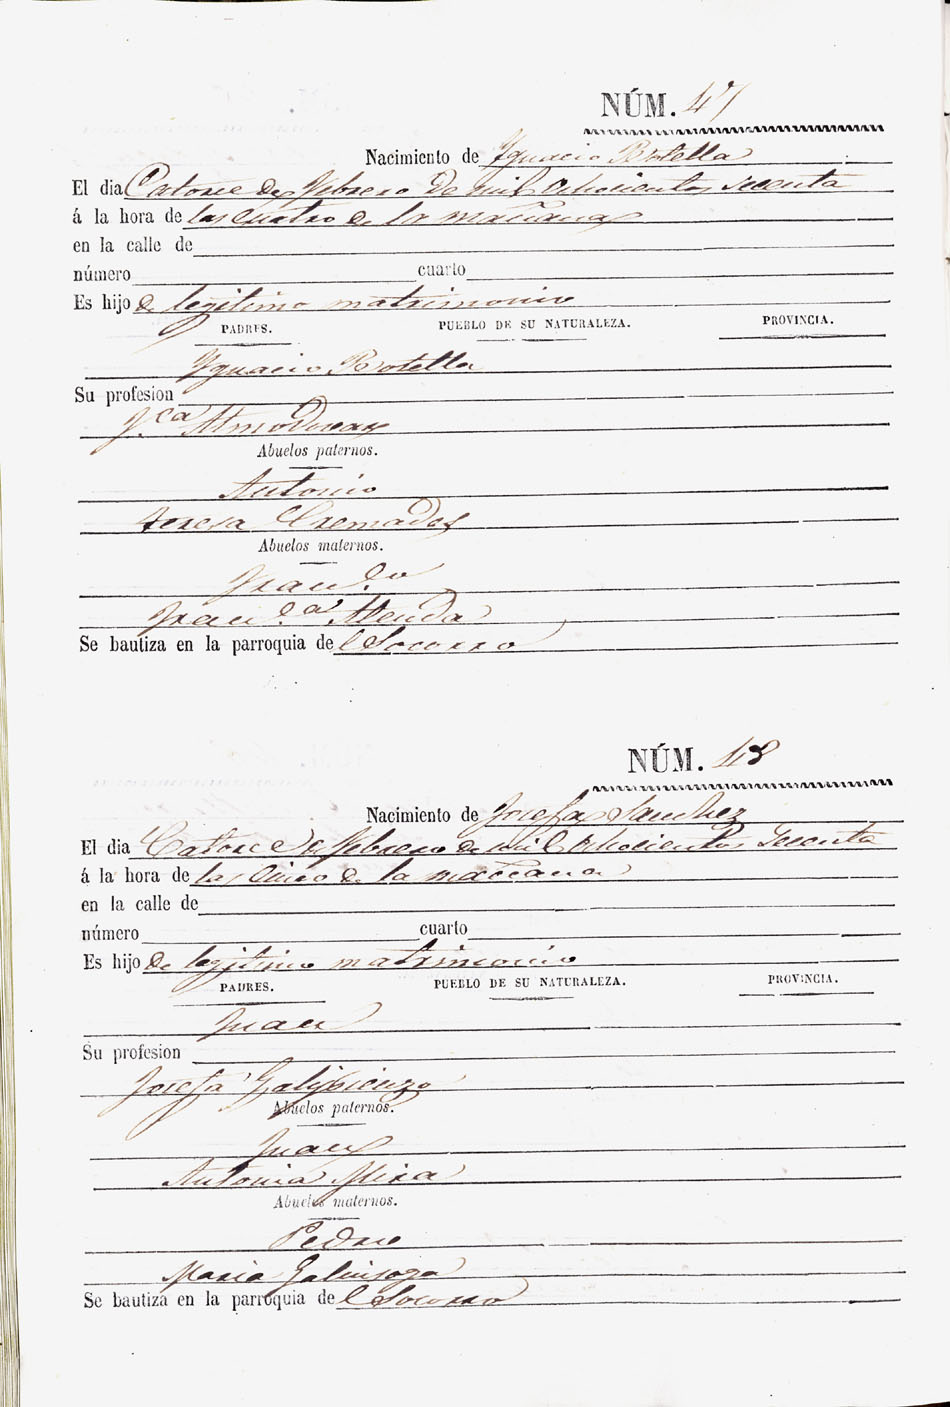 NÚM. 47
Nacimiento de Ygnacio Botella
El dia Catorce de febrero de mil ochocientos sesenta
á la hora de las cuatro de la mañana
en la calle de
número cuarto
Es hijo de legitimo matrimonio
PADRES. PUEBLO DE SU NATURALEZA. PROVINCIA.
Ygnacio Botella
Su profesion
F.ca Almodovar
Abuelos paternos.
Antonio
Teresa Cremades
Abuelos maternos.
Fran.co
Fran.ca
Se bautiza en la parroquia de l Socorro
NÚM. 48
Nacimiento de Josefa Sanchez
El dia Catorce de febrero de mil ochocientos sesenta
á la hora de las cinco de la mañana
en la calle de
número cuarto
Es hijo de legitimo matrimonio
PADRES. PUEBLO DE SU NATURALEZA. PROVINCIA.
Juan
Su profesion
Josefa
Abuelos paternos.
Juan
Antonia Mira
Abuelos maternos.
Pedro
Maria Galinsoga
Se bautiza en la parroquia de l Socorro